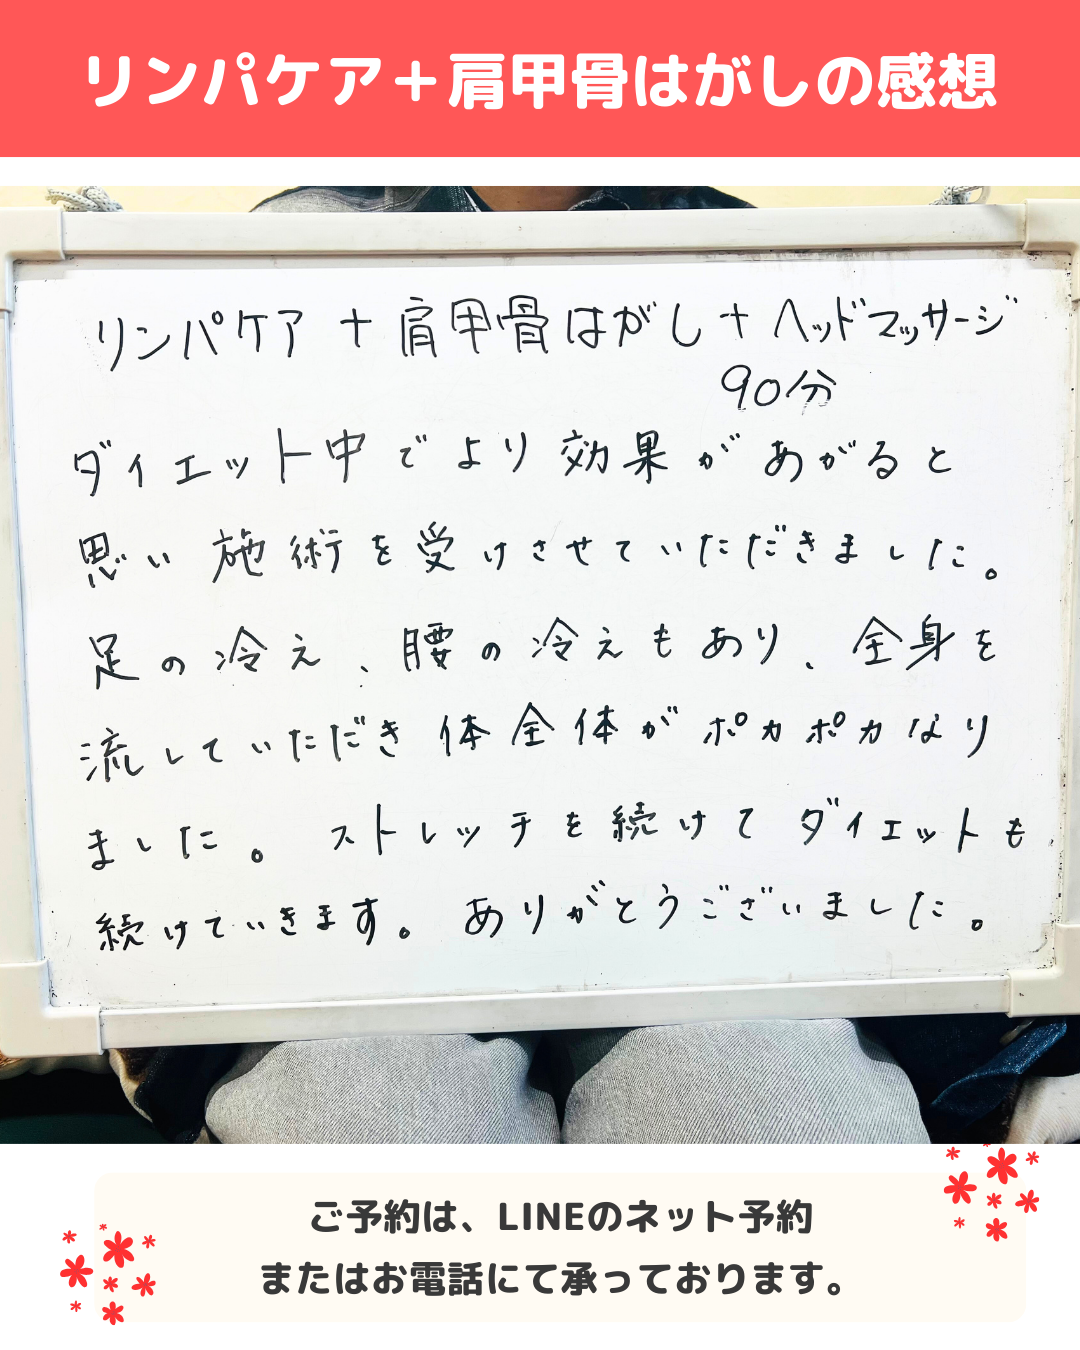 リンパケア＋肩甲骨はがしの感想
リンパケア＋肩甲骨はがし＋ヘッドマッサージ
90分
ダイエット中でより効果があがると
思い施術を受けさせていただきました。
足の冷え、腰の冷えもあり、全身を
流していただき体全体がポカポカなり
ました。ストレッチを続けてダイエットも
続けていきます。ありがとうございました。
ご予約は、LINEのネット予約
またはお電話にて承っております。